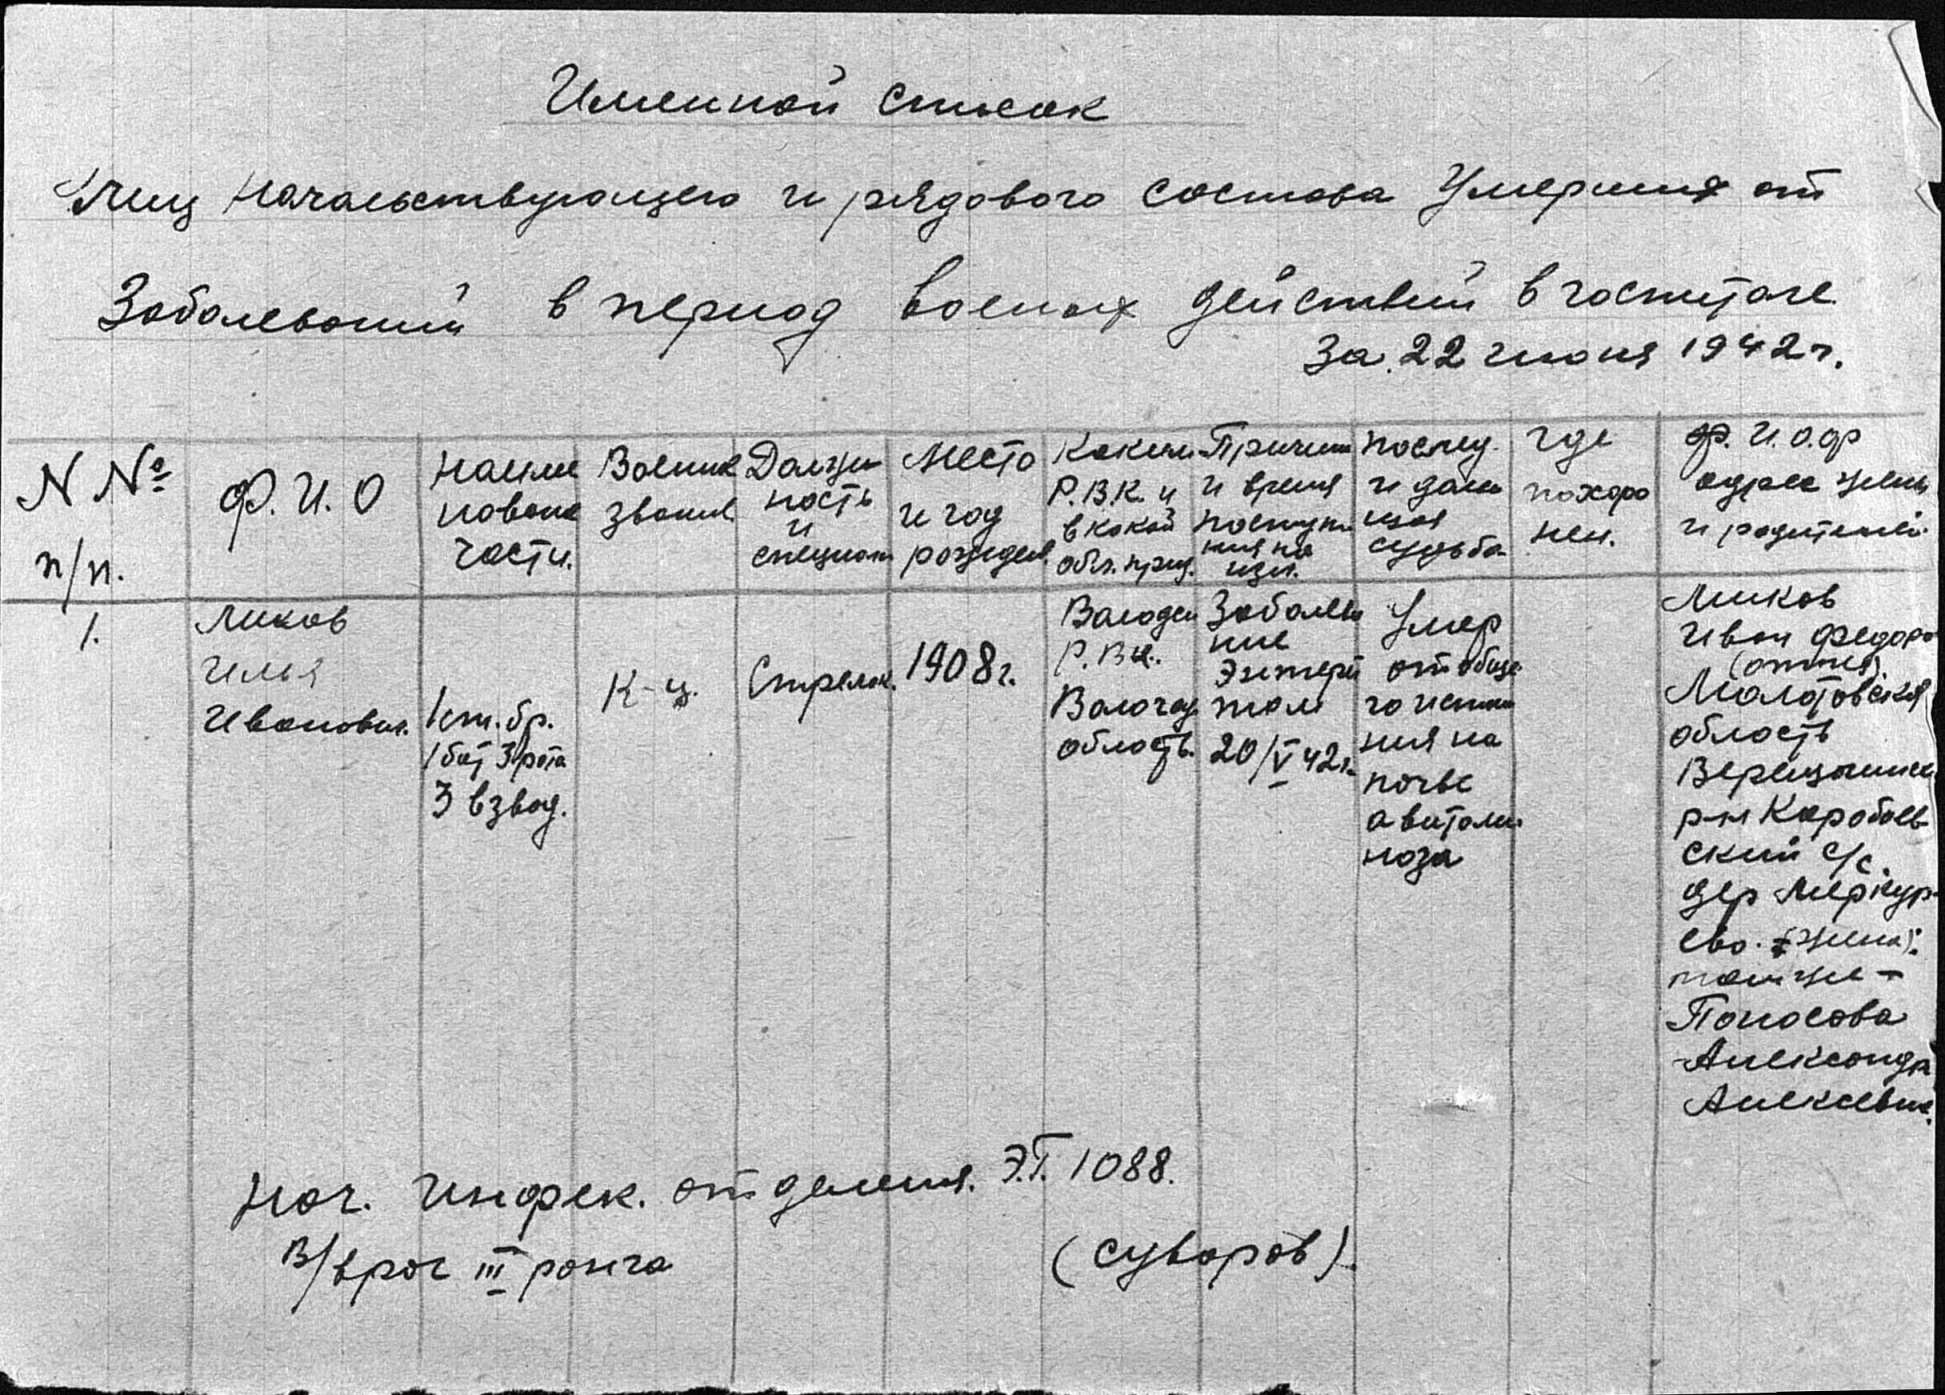 Именной список
Лиц Начальствующего и рядового состава Умерших от
Заболеваний в период военых действий в госпитале
За 22 июня 1942 г.
N Nº
п/п.
Ф. И. О
Наиме
новани
части.
Военное
звание
Должн
ность
и
специальн
Место
и год
рожден.
Каким
Р.В.К. и
в какой
обл. приз.
Причин
и время
поступле
ния на
изл.
послед.
и даль
щая
судьба
где
похоро
нен.
ф. И. О. др
адрес жены
и родителей
1.
Ликов
Илья
Иванович.
1 ст. бр.
1 бат 3 рота
3 взвод.
К-ц.
Стрелок.
1908 г.
Вологди
Р.Вк.
Вологод
область.
Заболева
ние
Энтери
том
20/V 42 г.
Умер
от обще
го истоще
ния на
почве
авитами
ноза
Ликов
Иван Федоро
(отец)
Молотовская
область
Верещагинск
р-н Коробов
ский с/с.
дер Меркур-
ево. (жена):
там же -
Поносова
Александра
Алексевна.
Нач. Инфек. отделения. Э.Г. 1088.
В/врач III ранга
(Суворов).